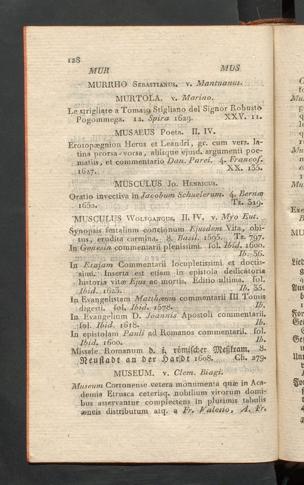 128
MUR MUS
MURRHO SEBASTIANUS. v. Mantuanus.
MURTOLA. v. Marino.
Le strigliate a Tomaso Stigliano del Signor Robusto
Pogommega. 12. Spira 1629. XXV. 11.
MUSAEUS Poeta. II. IV.
Erotopægnion Herus et Leandri, gr. cum vers. la-
tina prorsa versa, absque ejusd. argumenti poe-
matiis, et commentario Dan. Parei. 4. Francof.
1627. XX. 135.
MUSCULUS Jo. HENRICUS.
Oratio invectiva in Jacobum Schuelerum. 4. Bernæ
1650. Tz. 319.
MUSCULUS WOLFGANGUS. II. IV. v. Myo Eut.
Synopsis festalium concionum Ejusdem Vita, obi-
tus, erudita carmina. 8. Basil. 1595. Tz. 797.
In Genesin commentarii plenissimi. fol. Ibid. 1600.
Ib. 36.
In Esajam Commentarii locupletissimi et doctis-
simi. Inserta est etiam in epistola dedicatoria
historia vitæ Ejus ac mortis. Editio ultima. fol.
Ibid. 1623. Ib. 35.
In Evangelistam Matthæum commentarii III Tomis
digesti. fol. Ibid. 1578. Ib.
In Evangelium D. Joannis Apostoli commentarii.
fol. Ibid. 1618. Ib.
In epistolam Pauli ad Romanos commentarii. fol.
Ibid. 1600. Ib.
Missale Romanum d. i. römischer Meßkram. 8.
Neustadt an der Hardt 1608. Ch. 279.
MUSEUM. v. Clem. Biagi.
Museum Cortonense vetera monumenta quæ in Aca-
demia Etrusca ceterisq. nobilium virorum domi-
bus asservantur complectens in plurimis tabulis
æneis distributum atq. a Fr. Valesio, A. Fr.